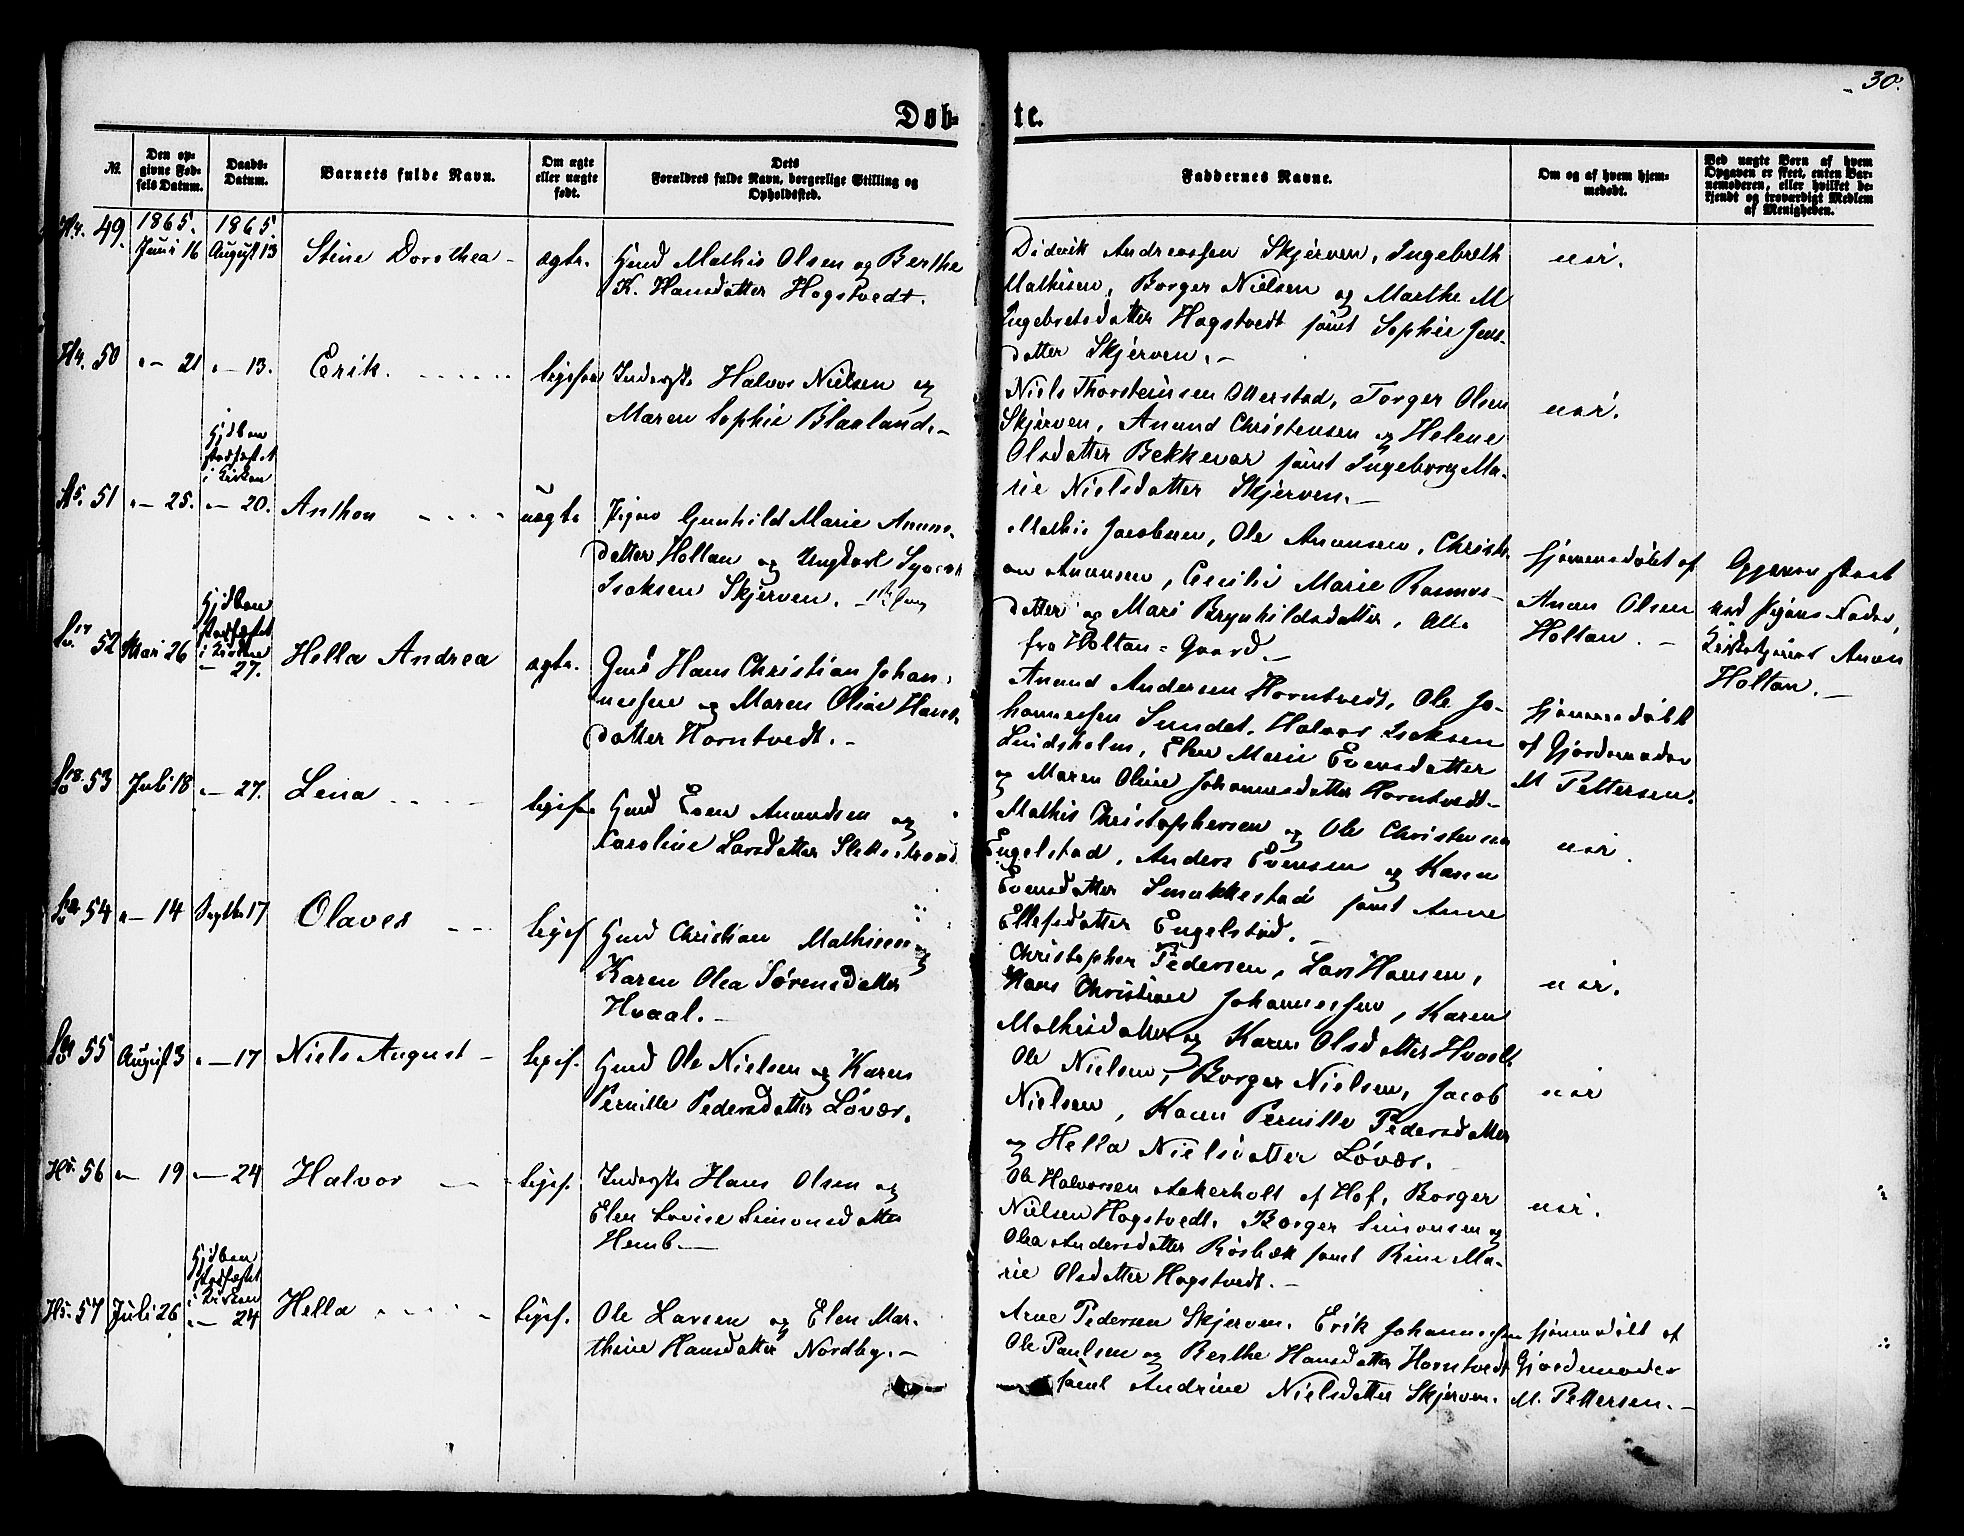 30.
Døb-
te.
№
Den op-
givne Fød-
sels Datum.
Daabs-
Datum.
Barnets fulde Navn.
Om ægte
eller uægte
født.
Dets
Forældres fulde Navn, borgerlige Stilling og
Opholdssted.
Faddernes Navne.
Om og af hvem hjem-
medøbt.
Ved uægte Børn af hvem
Opgaven er skeet, enten Bar-
nemoderen, eller hvilket be-
kjendt og troværdigt Medlem
af Menigheden.
49.
1865.
Juni 16
1865.
August 13
Stine Dorothea -
ægte.
Gmd Mathis Olsen og Berthe
K. Hansdatter Hogstvedt.
Diderik Andreassen Skjerven, Ingebreth
Mathisen, Borger Nielsen og Marthe M
Ingebretsdatter Hogstvedt samt Sophie Jens-
datter Skjerven. -
nei.
50
" - 21
" - 13.
Erik.
Inderste Halvor Nielsen og
Maren Sophie Blaaland. -
Niels Thorsteinsen Otterstad, Torger Olsen
Skjerven, Anund Christensen og Helene
Olsdatter Bekkevar samt Ingeborg Ma-
rie Nielsdatter Skjerven. -
nei.
51
" - 25.
Hjdben
stadfæstet
i Kirken
" - 20.
Anthon
uægte
Pigen Gunhild Marie Anuns-
datter Holtan og Ungkarl Syver
Isaksen Skjerven.
Mathis Jacobsen, Ole Anunsen, Christi-
an Anunsen, Cecilie Marie Rasmus-
datter og Mari Brynhildsdatter, Alle
fra Holtan-Gaard. -
hjemmedøbt af
Anun Olsen
Holtan. -
Opgaven skeet
ved Pigens Fader,
Anun
Holtan. -
52
Mai 26
Hjdben
stadfæstet
i Kirken
- 27.
Hella Andrea
ægte.
Gmd Hans Christian Johan-
nessen og Maren Oline Hans-
datter Horntvedt. -
Anund Andersen Horntvedt, Ole Jo-
hannessen Sundet, Halvor Isaksen
Lindsholm, Elen Marie Evensdatter
og Maren Oline Johannesdatter Horntvedt -
hjemmedøbt
af Gjordemoder
M Pettersen.
53
Juli 18
" - 27.
Lena
Gmd Even Anundsen og
Karoline Larsdatter
Mathis Christophersen og Ole Christensen
Engelstad, Anders Evensen og Karen
Evensdatter Smukkestad samt Anne
Ellefsdatter Engelstad. -
nei.
54
" - 14
Septbr 17
Olaves
ligesf.
Gmd Christian Mathisen og
Karen Olea Sørensdatter
Hvaal. -
Christopher Pedersen, Lars Hansen,
Hans Christian Johannessen, Karen
Mathisdatter og Karen Olsdatter Hvaal
nei.
55
August 3
" - 17
Niels August -
ligesf.
Gmd Ole Nielsen og Karen
Pernille Pedersdatter Løvær.
Ole Nielsen, Borger Nielsen, Jacob
Nielsen, Karen Pernille Pedersdatter
og Hella Nielsdatter Løvær.
nei
56
" - 19
" - 24
Halvor
ligesf.
Inderste Hans Olsen og
Elen Lovise Simonsdatter
Hemb. -
Ole Halvorsen Aakerholt af Hof, Borger
Nielsen Hogstvedt, Borger Simonsen og
Olea Andersdatter Røsbæk samt Rine Ma-
rie Olsdatter Hogstvedt. -
nei.
57
Juli 26
Hjdben
stadfæstet
i Kirken
" - 24
Hella
ligesf.
Ole Larsen og Elen Mar-
thine Hansdatter Nordby. -
Arne Pedersen Skjerven, Erik Johannessen
Ole Paulsen og Berthe Hansdatter Horntvedt
samt Andrine Nielsdatter Skjerven.
hjemmedøbt af
Gjordemoder
M. Pettersen. -